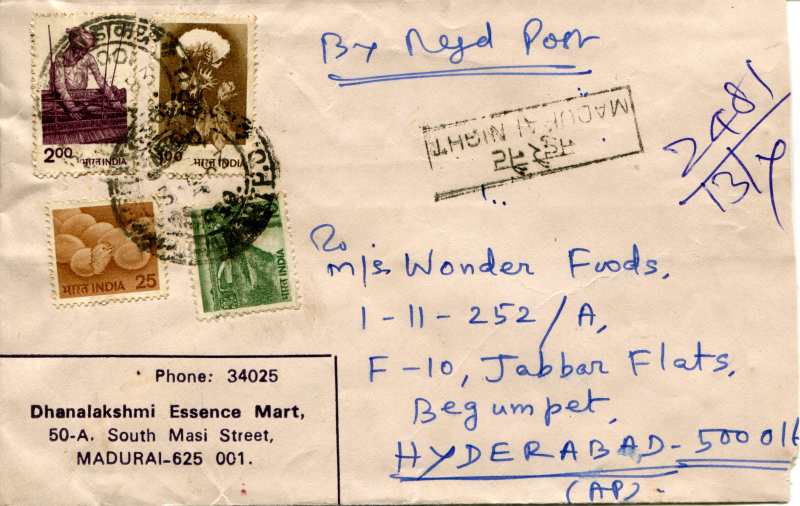 By Regd Post
2.00
भारत INDIA
1.00
भारत INDIA
MADURAI NIGHT
2481
13/7
भारत INDIA 25
भारत INDIA
To
M/s. Wonder Foods,
1-11-252/A,
F-10, Jabbar Flats,
Begumpet,
HYDERABAD-500016
(AP).
Phone: 34025
Dhanalakshmi Essence Mart,
50-A. South Masi Street,
MADURAI-625 001.